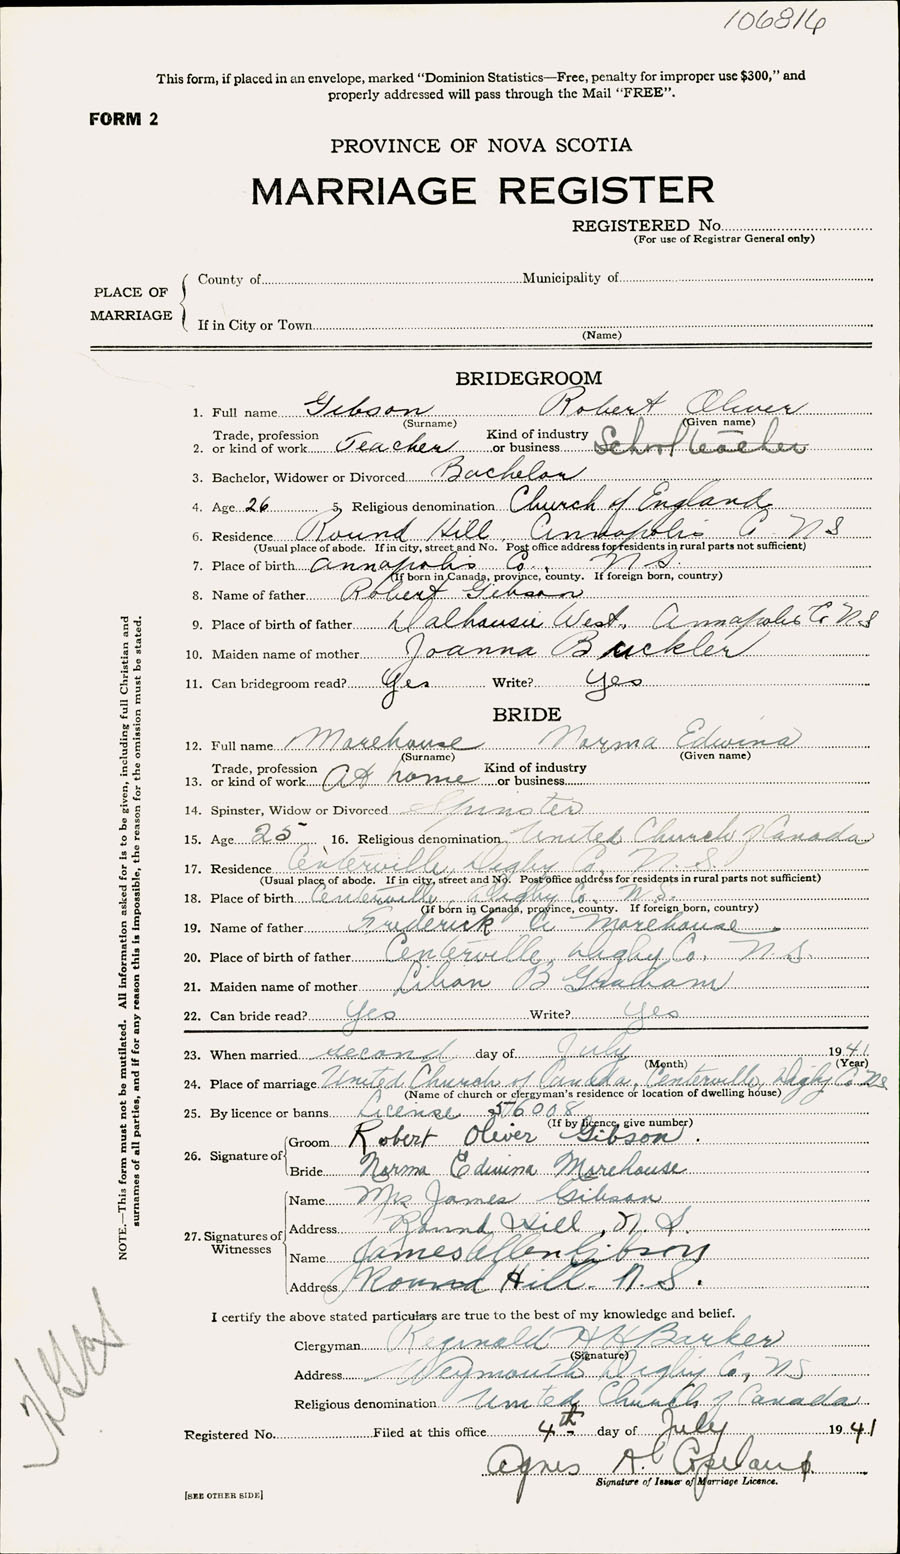 106816
This form, if placed in an envelope, marked "Dominion Statistics—Free, penalty for improper use $300," and
properly addressed will pass through the Mail "FREE".
FORM 2
PROVINCE OF NOVA SCOTIA
MARRIAGE REGISTER
REGISTERED No.
(For use of Registrar General only)
PLACE OF MARRIAGE
County of Municipality of
If in City or Town
(Name)
BRIDEGROOM
1. Full name Gibson Robert Oliver
(Surname) (Given name)
2. Trade, profession or kind of work Teacher Kind of industry or business School teacher
3. Bachelor, Widower or Divorced Bachelor
4. Age 26 5. Religious denomination Church of England
6. Residence Round Hill, Annapolis C. NS
(Usual place of abode. If in city, street and No. Post office address for residents in rural parts not sufficient)
7. Place of birth Annapolis Co., N.S.
(If born in Canada, province, county. If foreign born, country)
8. Name of father Robert Gibson
9. Place of birth of father Dalhousie West, Annapolis C. N.S
10. Maiden name of mother Joanna Buckler
11. Can bridegroom read? Yes Write? Yes
BRIDE
12. Full name Morehouse Norma Edwina
(Surname) (Given name)
13. Trade, profession or kind of work At home Kind of industry or business
14. Spinster, Widow or Divorced Spinster
15. Age 25 16. Religious denomination United Church of Canada
17. Residence Centerville, Digby Co, N.S.
(Usual place of abode. If in city, street and No. Post office address for residents in rural parts not sufficient)
18. Place of birth Centerville, Digby Co. N.S.
(If born in Canada, province, county. If foreign born, country)
19. Name of father Frederick A Morehouse
20. Place of birth of father Centerville, Digby Co, N.S.
21. Maiden name of mother Lilian B Graham
22. Can bride read? Yes Write? Yes
23. When married second day of July 1941
(Month) (Year)
24. Place of marriage United Church of Canada, Centerville, Digby Co NS
(Name of church or clergyman's residence or location of dwelling house)
25. By licence or banns License 576008
(If by licence, give number)
26. Signature of Groom Robert Oliver Gibson.
Bride Norma Edwina Morehouse
27. Signatures of Witnesses
Name Mrs James Gibson
Address Round Hill, N.S.
Name James Allen Gibson
Address Round Hill. N.S.
I certify the above stated particulars are true to the best of my knowledge and belief.
Clergyman Reginald H H Barker
(Signature)
Address Weymouth Digby Co, NS
Religious denomination United Church of Canada
Registered No. Filed at this office 4th day of July 1941
Agnes A. Copeland
Signature of Issuer of Marriage Licence.
[SEE OTHER SIDE]
NOTE.—This form must not be mutilated. All information asked for is to be given, including full Christian and
surnames of all parties, and if for any reason this is impossible, the reason for the omission must be stated.